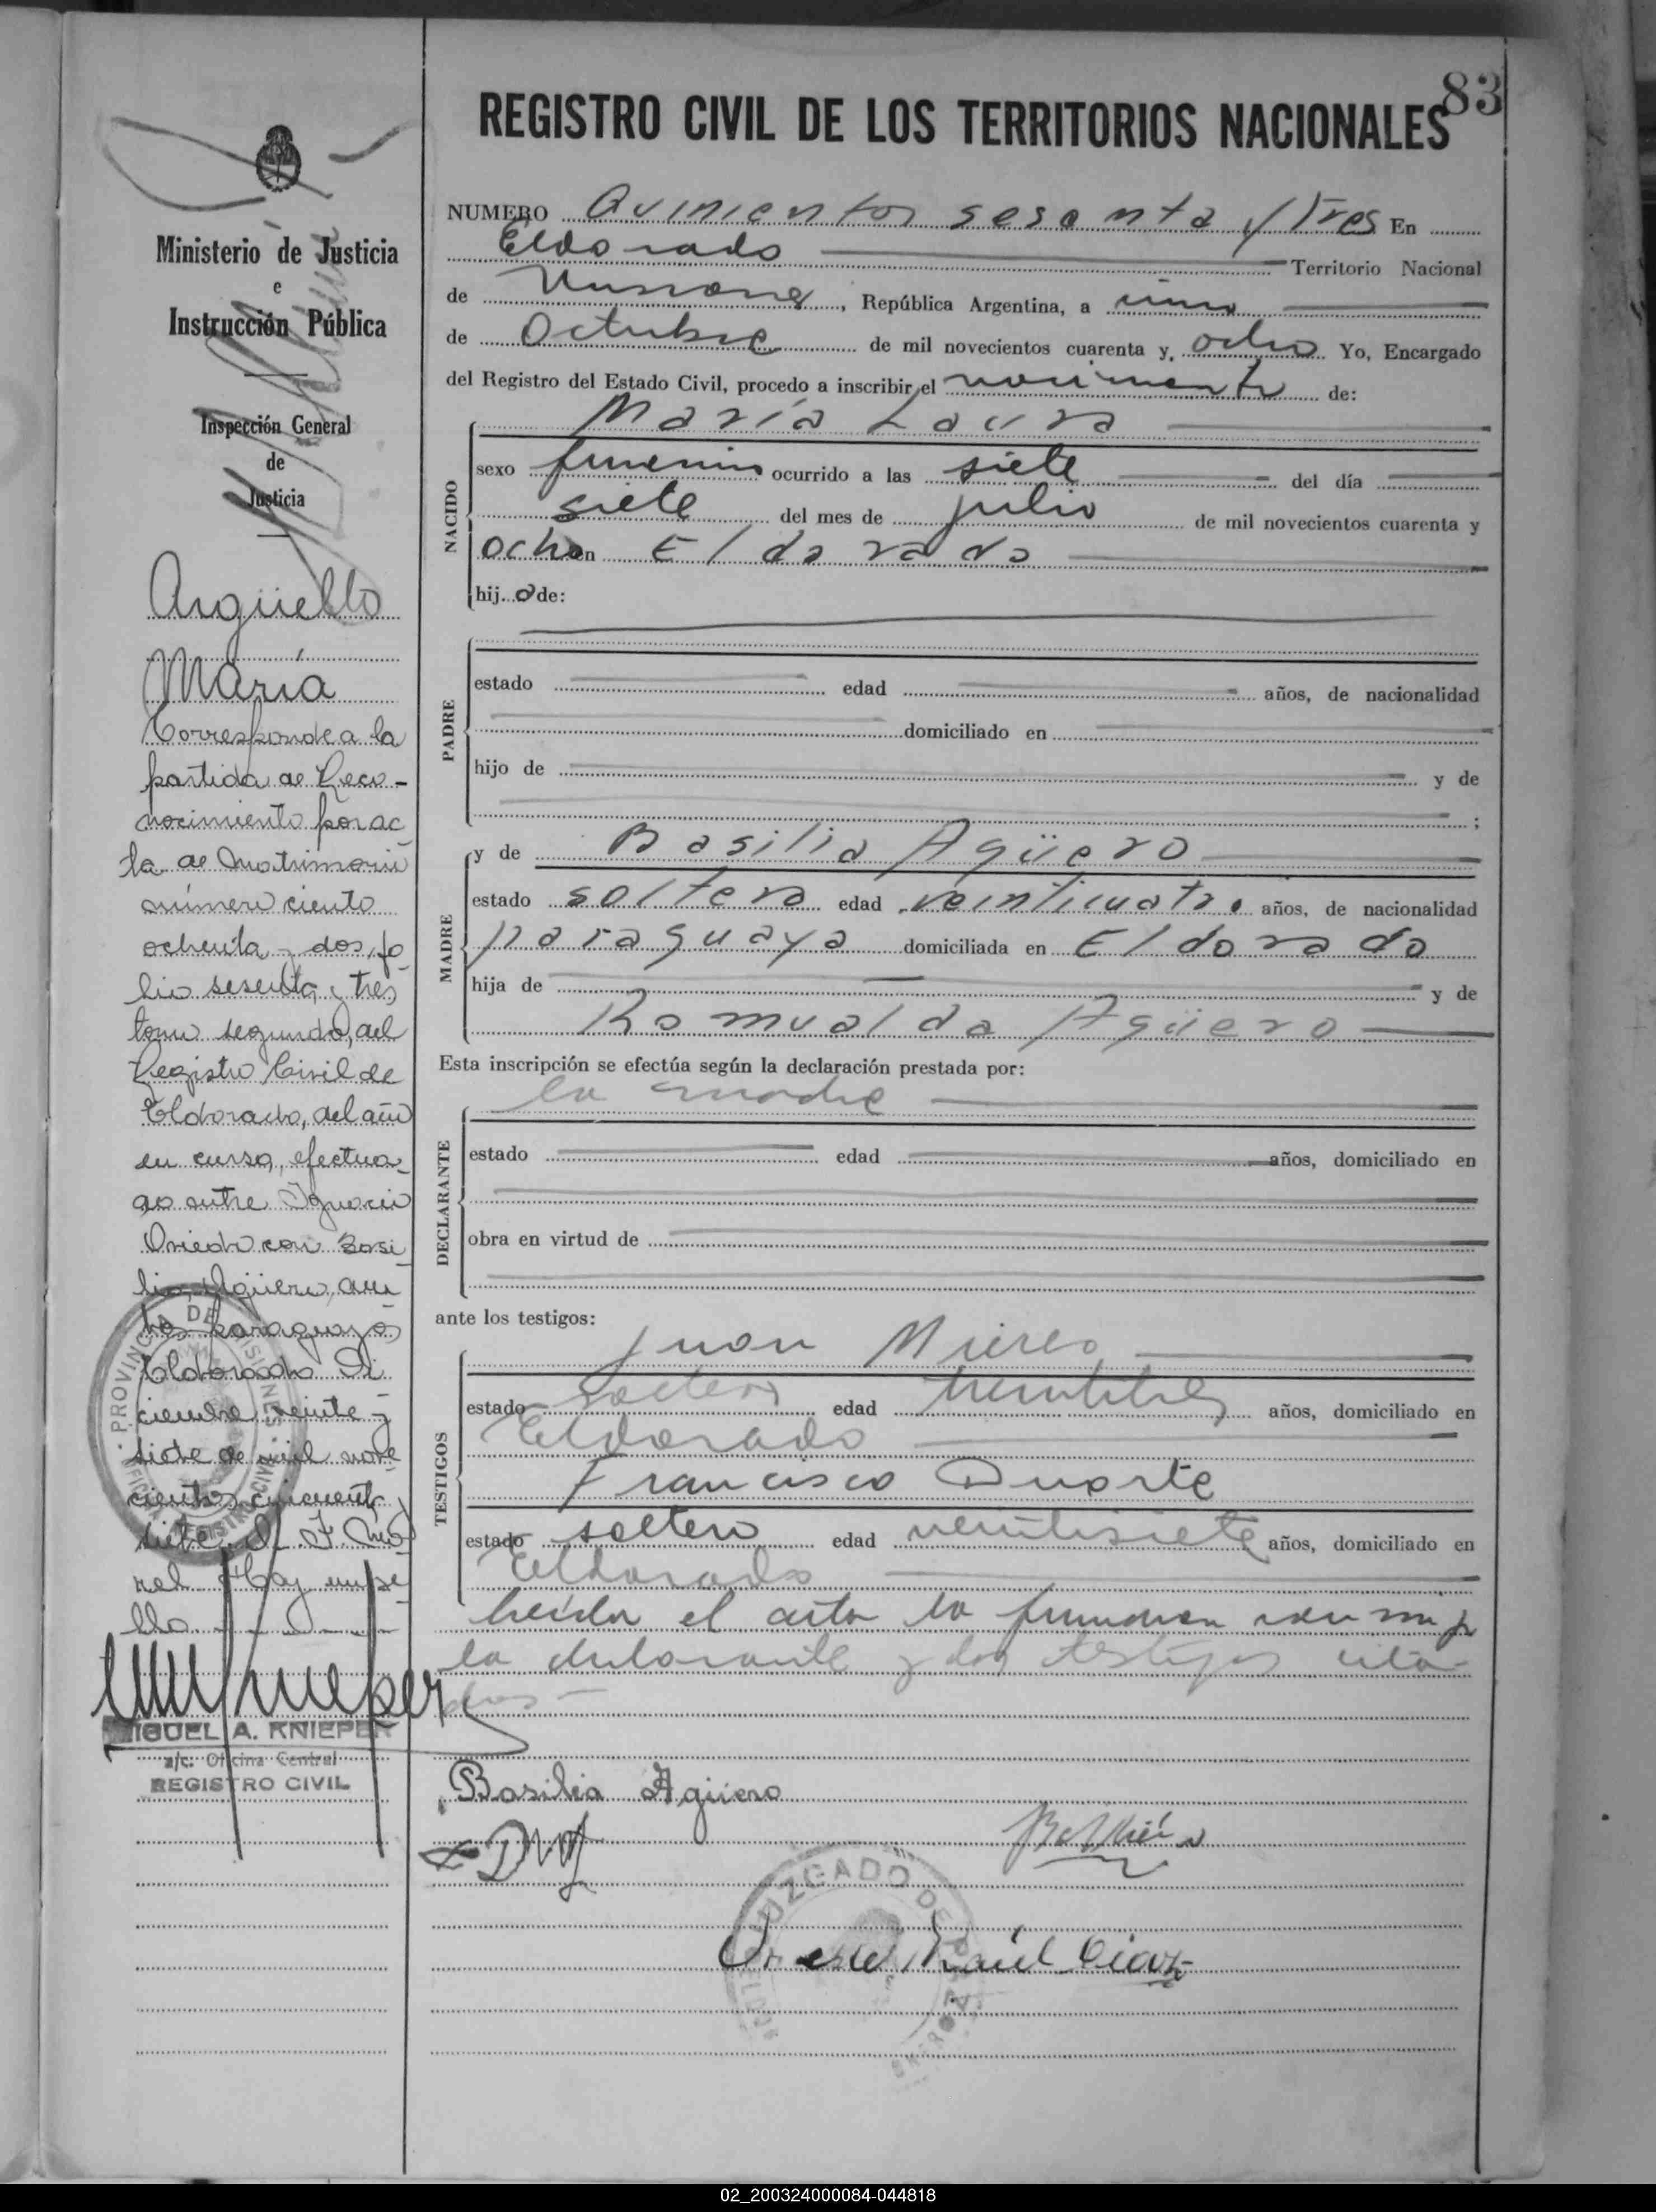 83
REGISTRO CIVIL DE LOS TERRITORIOS NACIONALES
Ministerio de Justicia
e
Instrucción Pública
Inspección General
de
Justicia
Argüello
María
Corresponde a la
partida de Reco-
nocimiento por ac
ta de Matrimonio
número ciento
ochenta y dos, fo
lio sesenta y tres
tomo segundo, del
Registro Civil de
Eldorado, del año
en curso, efectua-
do entre Ignacio
Oviedo con Basi
lia Agüero, am
bos paraguayos
Eldorado Di
ciembre veinte y
siete de mil nove
cientos cincuenta y
siete. Hay un se
llo
PROVINCIA DE MISIONES
REGISTRO CIVIL
MIGUEL A. KNIEPER
a/c. Oficina Central
REGISTRO CIVIL
NUMERO Quinientos sesenta y Tres En
Eldorado Territorio Nacional
de Misiones, República Argentina, a uno
de Octubre de mil novecientos cuarenta y ocho Yo, Encargado
del Registro del Estado Civil, procedo a inscribir el nacimiento de:
María Laura
NACIDO
sexo femenino ocurrido a las siete del día
siete del mes de julio de mil novecientos cuarenta y
ocho en Eldorado
hij a de:
PADRE
estado edad años, de nacionalidad
domiciliado en
hijo de y de
;
MADRE
y de Basilia Agüero
estado soltera edad veinticuatro años, de nacionalidad
paraguaya domiciliada en Eldorado
hija de y de
Romualda Agüero
Esta inscripción se efectúa según la declaración prestada por:
la madre
DECLARANTE
estado edad años, domiciliado en
obra en virtud de
ante los testigos:
TESTIGOS
Juan Mieres
estado soltero edad treintitres años, domiciliado en
Eldorado
Francisco Duarte
estado soltero edad veintisiete años, domiciliado en
Eldorado
Leída el acta la firmaron conmigo
la declarante y los testigos cita-
dos-
Basilia Agüero
JUZGADO DE PAZ
Raúl Díaz
02_200324000084-044818